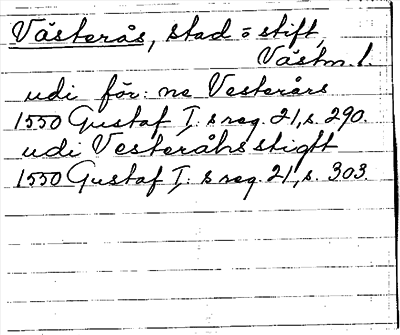 Västerås, stad o stift,
Västm. l.
udi för: ne Vesterårs
1550 Gustaf I: s reg. 21, s. 290.
udi Vesteråhs stigtt
1550 Gustaf I: s reg. 21, s. 303.